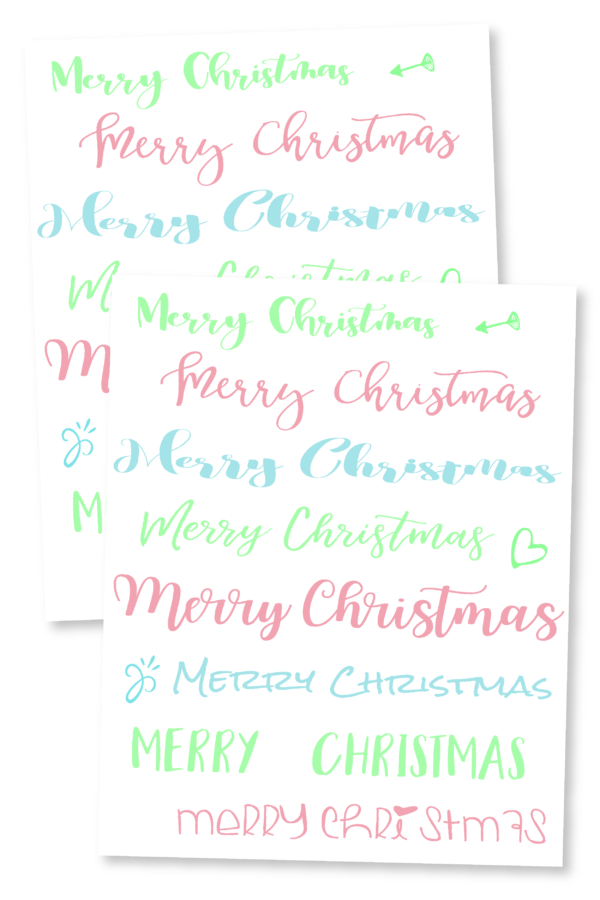 Merry Christmas
Merry Christmas
Merry Christmas
M Christmas
M
M
Merry Christmas
Merry Christmas
Merry Christmas
Merry Christmas
Merry Christmas
MERRY CHRISTMAS
MERRY CHRISTMAS
merry christmas